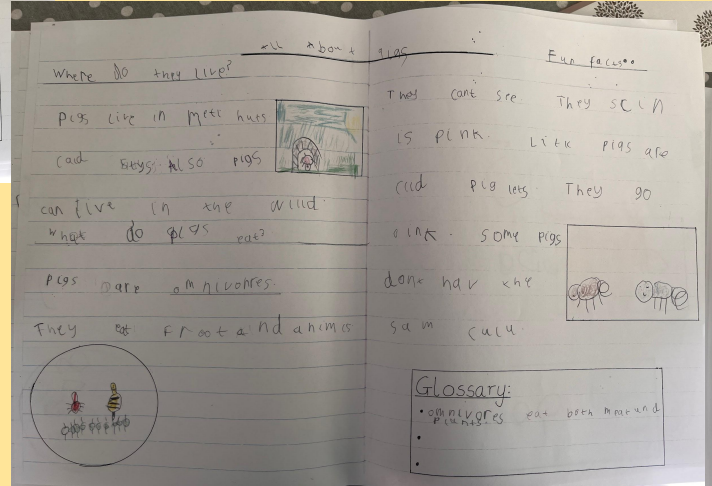 All About pigs
Where do they live?
pigs live in metl huts
cald stys. Also pigs
can live in the wild.
What do pigs eat?
pigs are omnivores.
They eat froot and animls
Fun facts
They cant see. They scin
is pink. Littl pigs are
clld piglets. They go
oink. some pigs
dont hav the
sam culu.
Glossary:
• omnivores eat both meat and
plants.
•
•